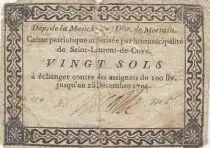 Dép. de la Manche Dist. de Mortain.
Caisse patriotique autorisée par la municipalité
de Saint-Laurent-de-Cuve.
VINGT SOLS
à échanger contre des assignats de 100 liv.
jusqu'au 26 Décembre